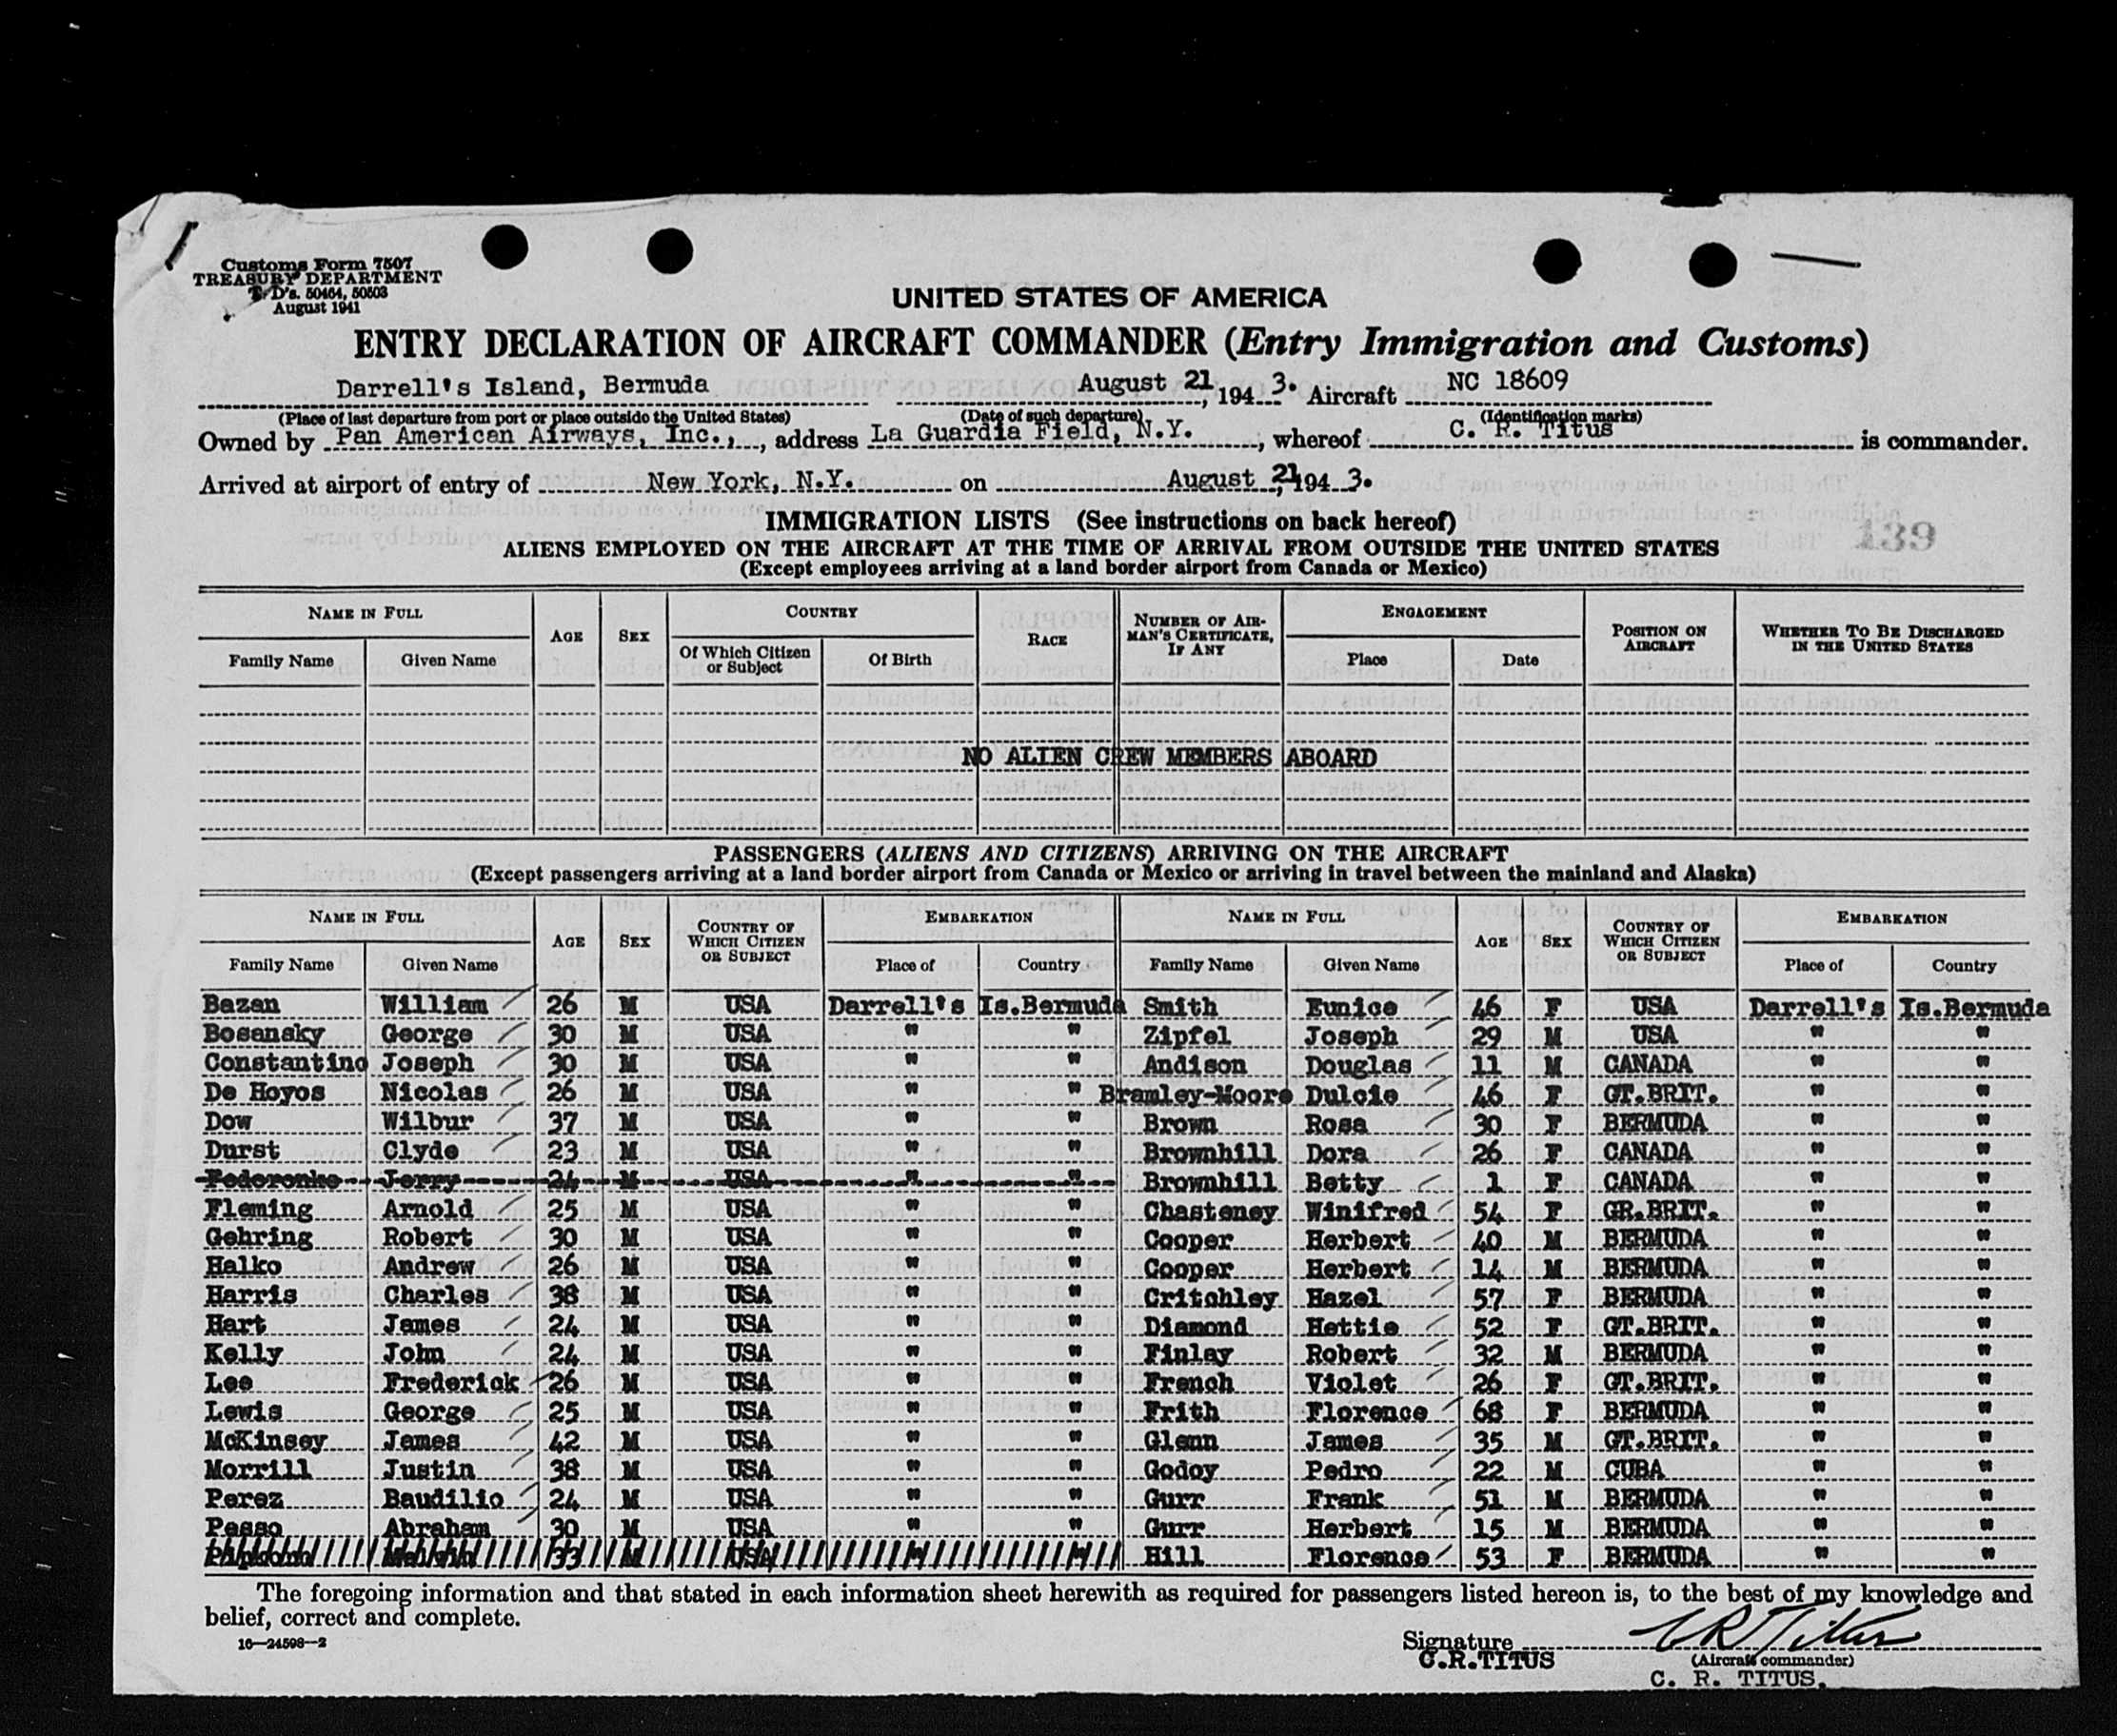 Customs Form 7507
TREASURY DEPARTMENT
T. D's. 50464, 50503
August 1941
UNITED STATES OF AMERICA
ENTRY DECLARATION OF AIRCRAFT COMMANDER (Entry Immigration and Customs)
Darrell's Island, Bermuda August 21, 1943. Aircraft NC 18609
(Place of last departure from port or place outside the United States) (Date of such departure) (Identification marks)
Owned by Pan American Airways, Inc., address La Guardia Field, N.Y., whereof C. R. Titus is commander.
Arrived at airport of entry of New York, N.Y. on August 21, 1943.
IMMIGRATION LISTS (See instructions on back hereof)
139
ALIENS EMPLOYED ON THE AIRCRAFT AT THE TIME OF ARRIVAL FROM OUTSIDE THE UNITED STATES
(Except employees arriving at a land border airport from Canada or Mexico)
NAME IN FULL AGE SEX COUNTRY RACE NUMBER OF AIRMAN'S CERTIFICATE, IF ANY ENGAGEMENT POSITION ON AIRCRAFT WHETHER TO BE DISCHARGED IN THE UNITED STATES
Family Name Given Name Of Which Citizen or Subject Of Birth Place Date
NO ALIEN CREW MEMBERS ABOARD
PASSENGERS (ALIENS AND CITIZENS) ARRIVING ON THE AIRCRAFT
(Except passengers arriving at a land border airport from Canada or Mexico or arriving in travel between the mainland and Alaska)
NAME IN FULL AGE SEX COUNTRY OF WHICH CITIZEN OR SUBJECT EMBARKATION NAME IN FULL AGE SEX COUNTRY OF WHICH CITIZEN OR SUBJECT EMBARKATION
Family Name Given Name Place of Country Family Name Given Name Place of Country
Bazan William 26 M USA Darrell's Is.Bermuda Smith Eunice 46 F USA Darrell's Is.Bermuda
Bosansky George 30 M USA " " Zipfel Joseph 29 M USA " "
Constantino Joseph 30 M USA " " Andison Douglas 11 M CANADA " "
De Hoyos Nicolas 26 M USA " " Bramley-Moore Dulcie 46 F GT.BRIT. " "
Dow Wilbur 37 M USA " " Brown Rosa 30 F BERMUDA " "
Durst Clyde 23 M USA " " Brownhill Dora 26 F CANADA " "
Fedoronko Jerry 24 M USA " " Brownhill Betty 1 F CANADA " "
Fleming Arnold 25 M USA " " Chasteney Winifred 54 F GR.BRIT. " "
Gehring Robert 30 M USA " " Cooper Herbert 40 M BERMUDA " "
Halko Andrew 26 M USA " " Cooper Herbert 14 M BERMUDA " "
Harris Charles 38 M USA " " Critchley Hazel 57 F BERMUDA " "
Hart James 24 M USA " " Diamond Hettie 52 F GT.BRIT. " "
Kelly John 24 M USA " " Finlay Robert 32 M BERMUDA " "
Lee Frederick 26 M USA " " French Violet 26 F GT.BRIT. " "
Lewis George 25 M USA " " Frith Florence 68 F BERMUDA " "
McKinsey James 42 M USA " " Glenn James 35 M GT.BRIT. " "
Morrill Justin 38 M USA " " Godoy Pedro 22 M CUBA " "
Perez Baudilio 24 M USA " " Gurr Frank 51 M BERMUDA " "
Pesso Abraham 30 M USA " " Gurr Herbert 15 M BERMUDA " "
33 M USA " " Hill Florence 53 F BERMUDA " "
The foregoing information and that stated in each information sheet herewith as required for passengers listed hereon is, to the best of my knowledge and
belief, correct and complete.
16—24598—2
Signature C R Titus
C.R.TITUS (Aircraft commander)
C. R. TITUS.